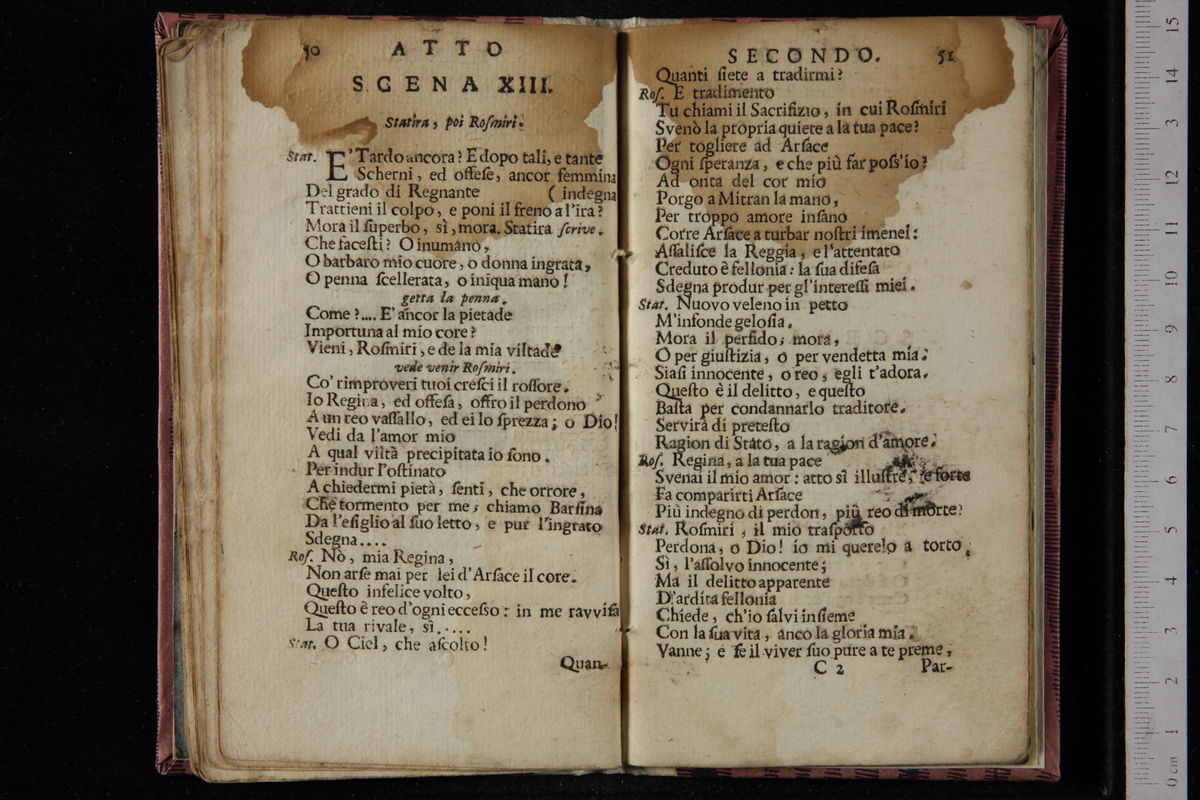 50 ATTO
SCENA XIII.
Statira, poi Roſmiri.
Stat. E' Tardo ancora? E dopo tali, e tante
Scherni, ed offeſe, ancor femmina
Del grado di Regnante ( indegna
Trattieni il colpo, e poni il freno a l'ira?
Mora il ſuperbo, sì, mora. Statira ſcrive.
Che faceſti? O inumano,
O barbaro mio cuore, o donna ingrata,
O penna ſcellerata, o iniqua mano!
getta la penna.
Come?.... E' ancor la pietade
Importuna al mio core?
Vieni, Roſmiri, e de la mia viltade
vede venir Roſmiri.
Co' rimproveri tuoi creſci il roſſore.
Io Regina, ed offeſa, offro il perdono
A un reo vaſſallo, ed ei lo ſprezza; o Dio!
Vedi da l'amor mio
A qual viltà precipitata io ſono.
Per indur l'oſtinato
A chiedermi pietà, ſenti, che orrore,
Che tormento per me, chiamo Barſina
Da l'eſiglio al ſuo letto, e pur l'ingrato
Sdegna....
Roſ. Nò, mia Regina,
Non arſe mai per lei d'Arſace il core.
Queſto infelice volto,
Queſto è reo d'ogni ecceſso: in me ravviſa
La tua rivale, sì.....
Stat. O Ciel, che aſcolto!
Quan-
SECONDO. 51
Quanti ſiete a tradirmi?
Roſ. E tradimento
Tu chiami il Sacrifizio, in cui Roſmiri
Svenò la propria quiete a la tua pace?
Per togliere ad Arſace
Ogni ſperanza, e che più far poſs'io?
Ad onta del cor mio
Porgo a Mitran la mano,
Per troppo amore inſano
Corre Arſace a turbar noſtri imenei:
Aſſaliſce la Reggia, e l'attentato
Creduto è fellonia: la ſua difeſa
Sdegna produr per gl'intereſſi miei.
Stat. Nuovo veleno in petto
M'infonde geloſia.
Mora il perfido; mora,
O per giuſtizia, o per vendetta mia.
Siaſi innocente, o reo, egli t'adora.
Queſto è il delitto, e queſto
Baſta per condannarlo traditore.
Servirà di preteſto
Ragion di Stato, a la ragion d'amore.
Roſ. Regina, a la tua pace
Svenai il mio amor: atto sì illuſtre, e forte
Fa comparirti Arſace
Più indegno di perdon, più reo di morte?
Stat. Roſmiri, il mio traſporto
Perdona, o Dio! io mi querelo a torto.
Sì, l'aſſolvo innocente;
Ma il delitto apparente
D'ardita fellonia
Chiede, ch'io ſalvi inſieme
Con la ſua vita, anco la gloria mia.
Vanne; e ſe il viver ſuo pure a te preme,
C 2 Par-